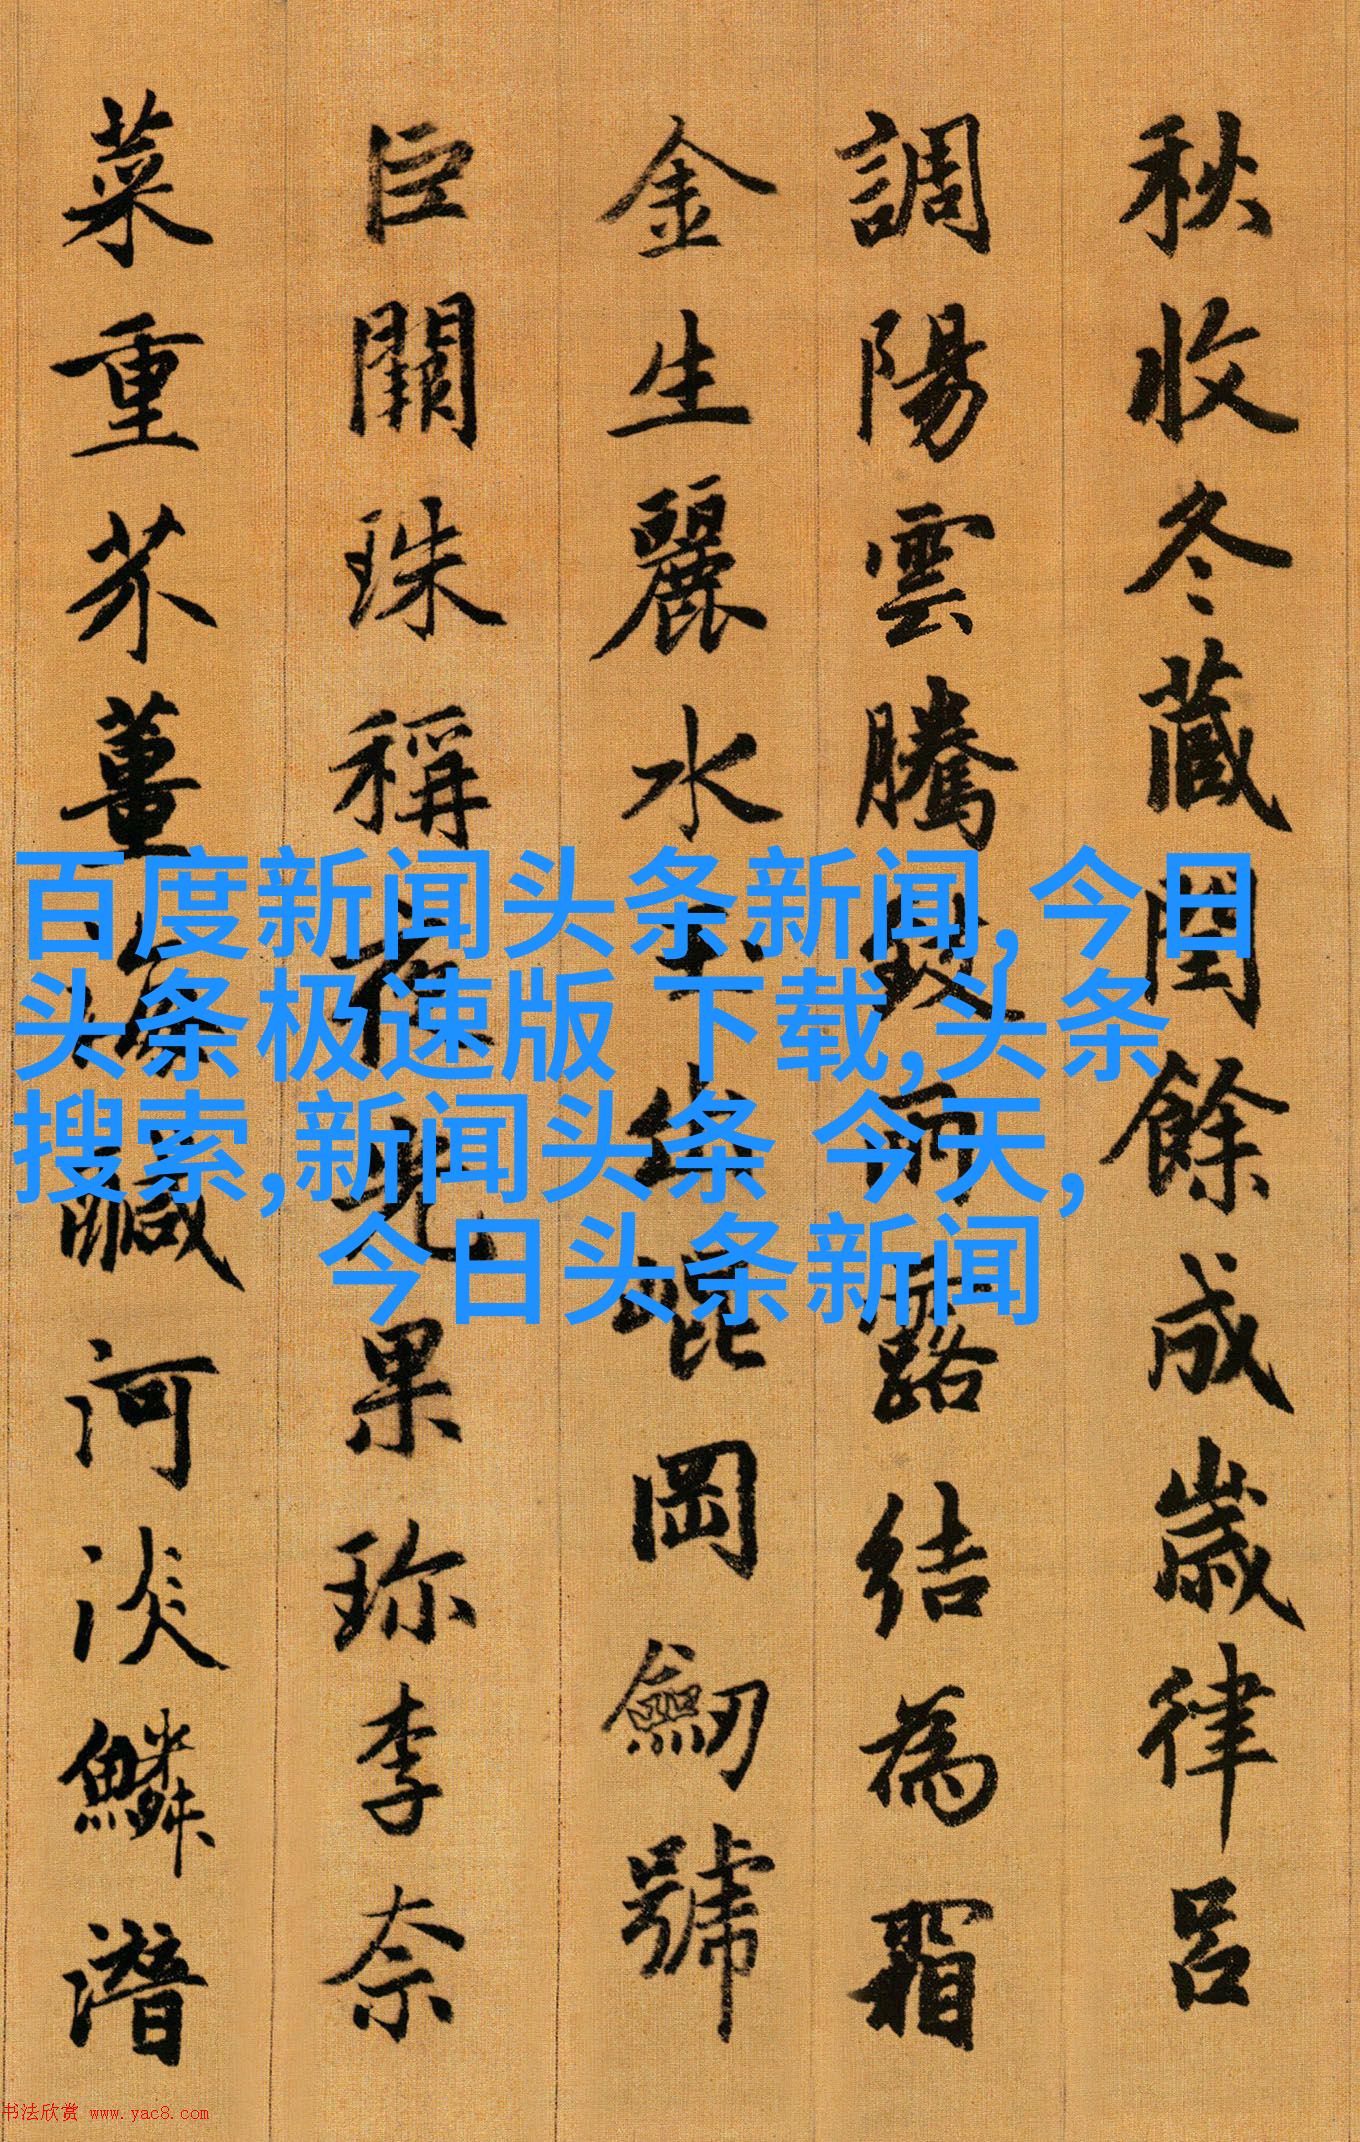 秋收冬藏閏餘成歲律呂
調陽雲騰致雨露結為霜
金生麗水玉出崐岡劒號
巨闕珠稱夜光果珎李奈
菜重芥薑海鹹河淡鱗潛
百度新闻头条新闻,今日
头条极速版 下载,头条
搜索,新闻头条 今天,
今日头条新闻
书法欣赏 www.yac8.com